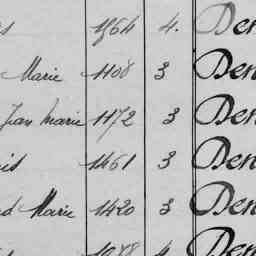 1564 4. Den
Marie 1108 3 Den
Jean Marie 1172 3 Den
1461 3 Den
Marie 1420 3 Den
1988 4 Den